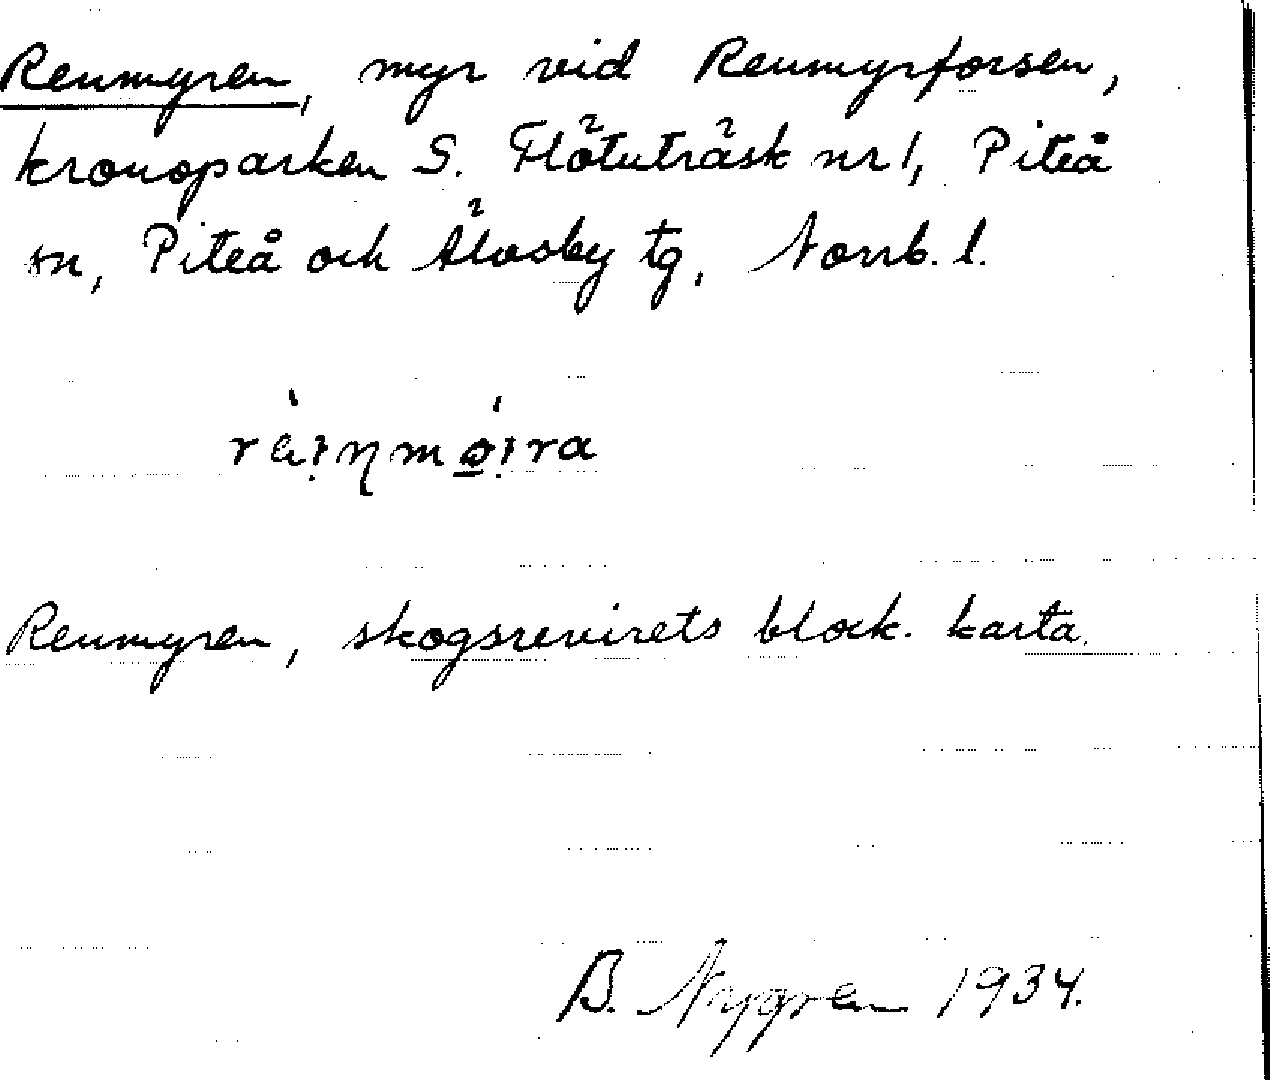 Renmyren, myr vid Renmyrforsen,
kronoparken S. Flötuträsk nr 1, Piteå
sn, Piteå och Älvsby tg, Norrb. l.
Renmyren, skogsrevirets block. karta.
B. Nygren 1934.